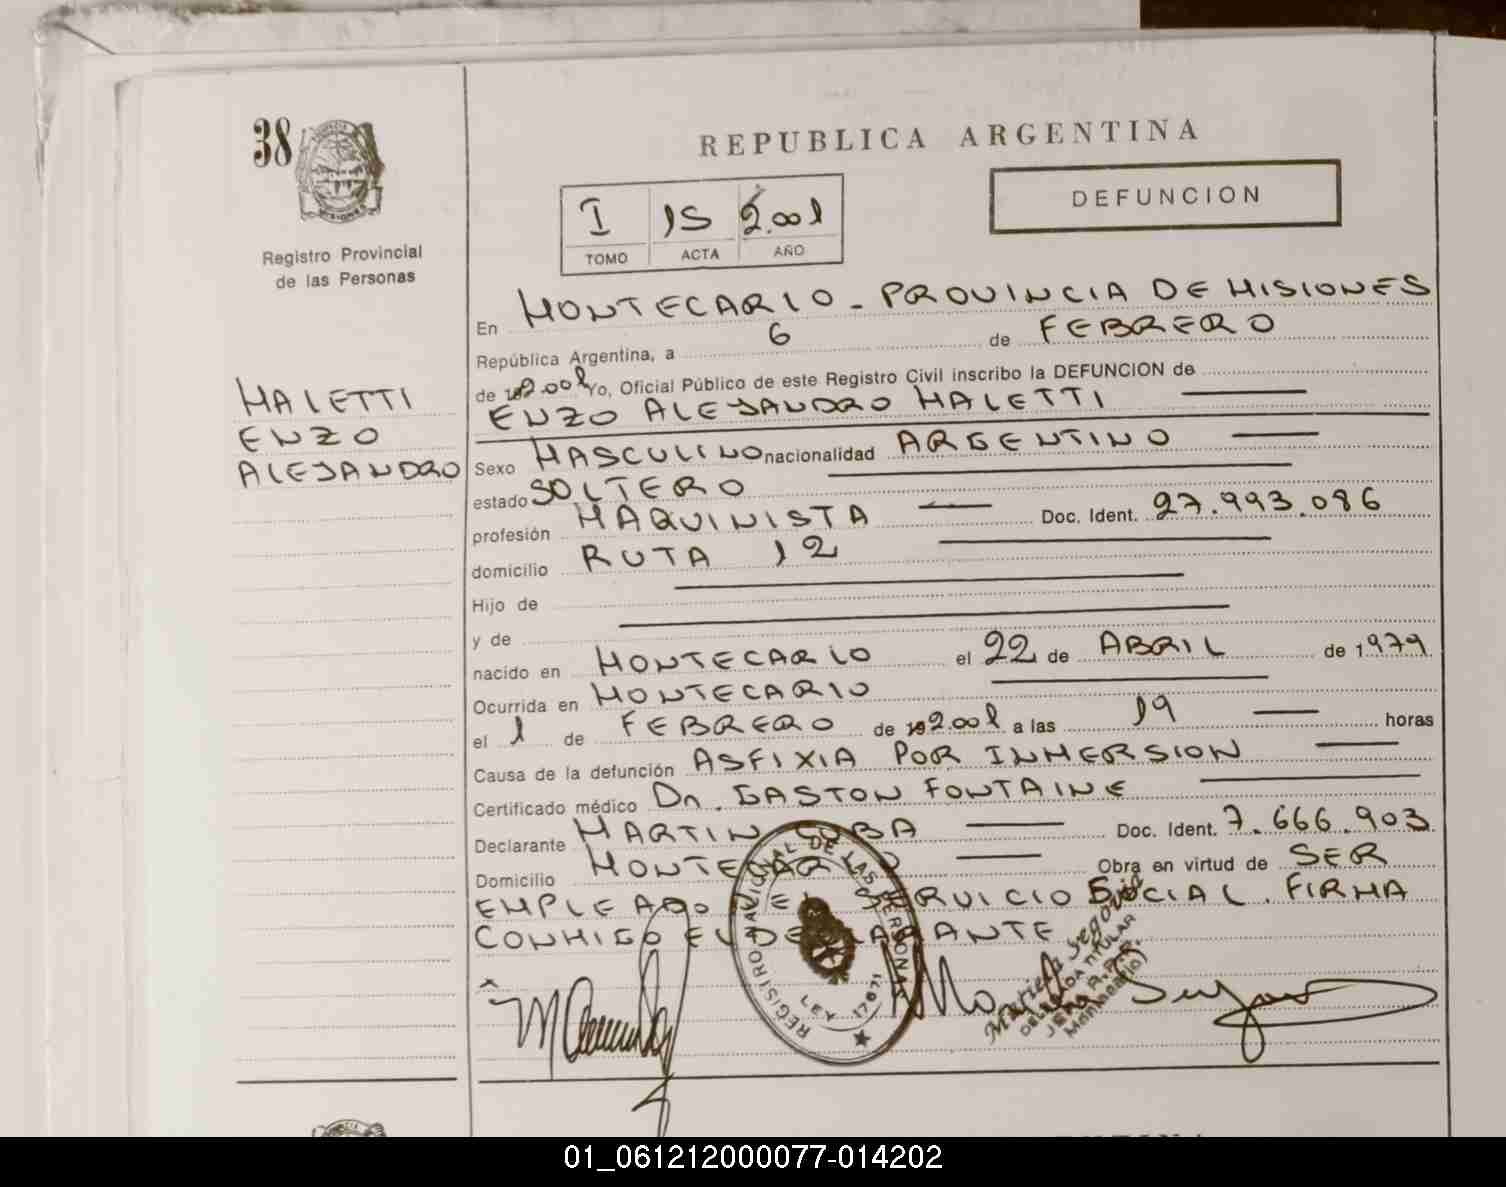 38
REPUBLICA ARGENTINA
DEFUNCION
I 15 2.001
TOMO ACTA AÑO
Registro Provincial
de las Personas
MISIONES
MALETTI
ENZO
ALEJANDRO
En MONTECARLO - PROVINCIA DE MISIONES
República Argentina, a 6 de FEBRERO
de 2.001 Yo, Oficial Público de este Registro Civil inscribo la DEFUNCION de
ENZO ALEJANDRO MALETTI
Sexo MASCULINO nacionalidad ARGENTINO
estado SOLTERO
profesión MAQUINISTA Doc. Ident. 27.993.086
domicilio RUTA 12
Hijo de
y de
nacido en MONTECARLO el 22 de ABRIL de 1979
Ocurrida en MONTECARLO
el 1 de FEBRERO de 2.001 a las 19 horas
Causa de la defunción ASFIXIA POR INMERSION
Certificado médico Dr. GASTON FONTAINE
Declarante MARTIN CUBA Doc. Ident. 7.666.903
Domicilio MONTECARLO Obra en virtud de SER
EMPLEADO DEL SERVICIO SOCIAL. FIRMA
CONMIGO EL DECLARANTE
REGISTRO NACIONAL DE LAS PERSONAS
LEY 17671
Mariela Segovia
DELEGADA TITULAR
01_061212000077-014202